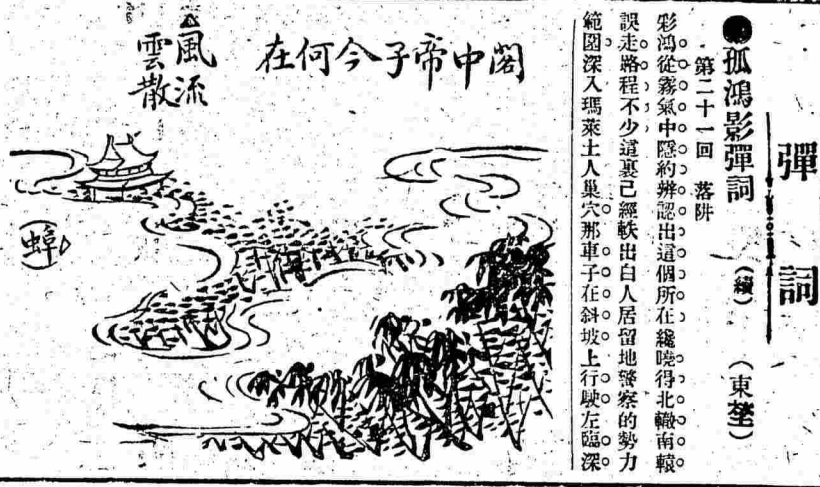 彈詞
●孤鴻影彈詞 (續) (東埜)
第二十一回 落阱
彩鴻從霧氣中隱約辨認出這個所在纔曉得北轍南轅
誤走路程不少這裏已經軼出白人居留地警察的勢力
範圍深入瑪萊土人巢穴那車子在斜坡上行駛左臨深
閣中帝子今何在
風流
雲散
(蟑)